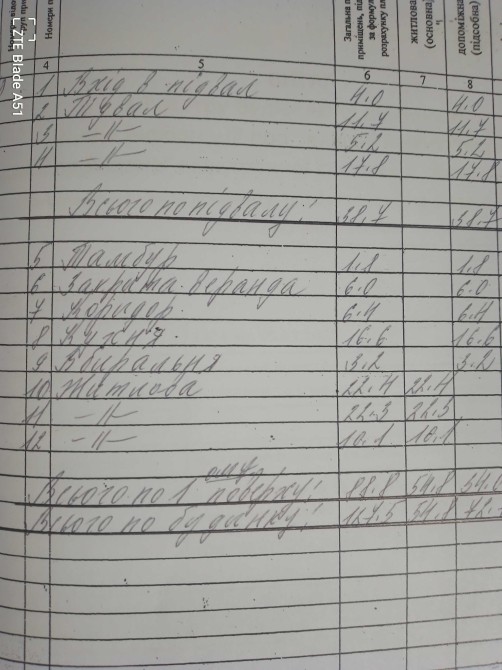 ZTE Blade A51
Номери п
Загальна п
приміщень, пл
за форму
розрахунку пл
житлова
(основна)
допоміжна
(підсобна)
4 5 6 7 8
1 Вхід в підвал 4.0 4.0
2 Підвал 11.7 11.7
3 -||- 5.2 5.2
4 -||- 17.8 17.8
Всього по підвалу: 38.7 38.7
5 Тамбур 1.8 1.8
6 Закрита веранда 6.0 6.0
7 Коридор 6.4 6.4
8 Кухня 16.6 16.6
9 Вбиральня 3.2 3.2
10 Житлова 22.4 22.4
11 -||- 22.3 22.3
12 -||- 10.1 10.1
Всього по 1 ому поверху: 88.8 54.8
Всього по будинку: 127.5 54.8